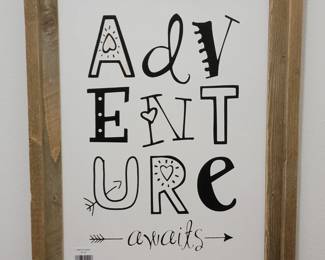 AdV
ENT
URe
awaits